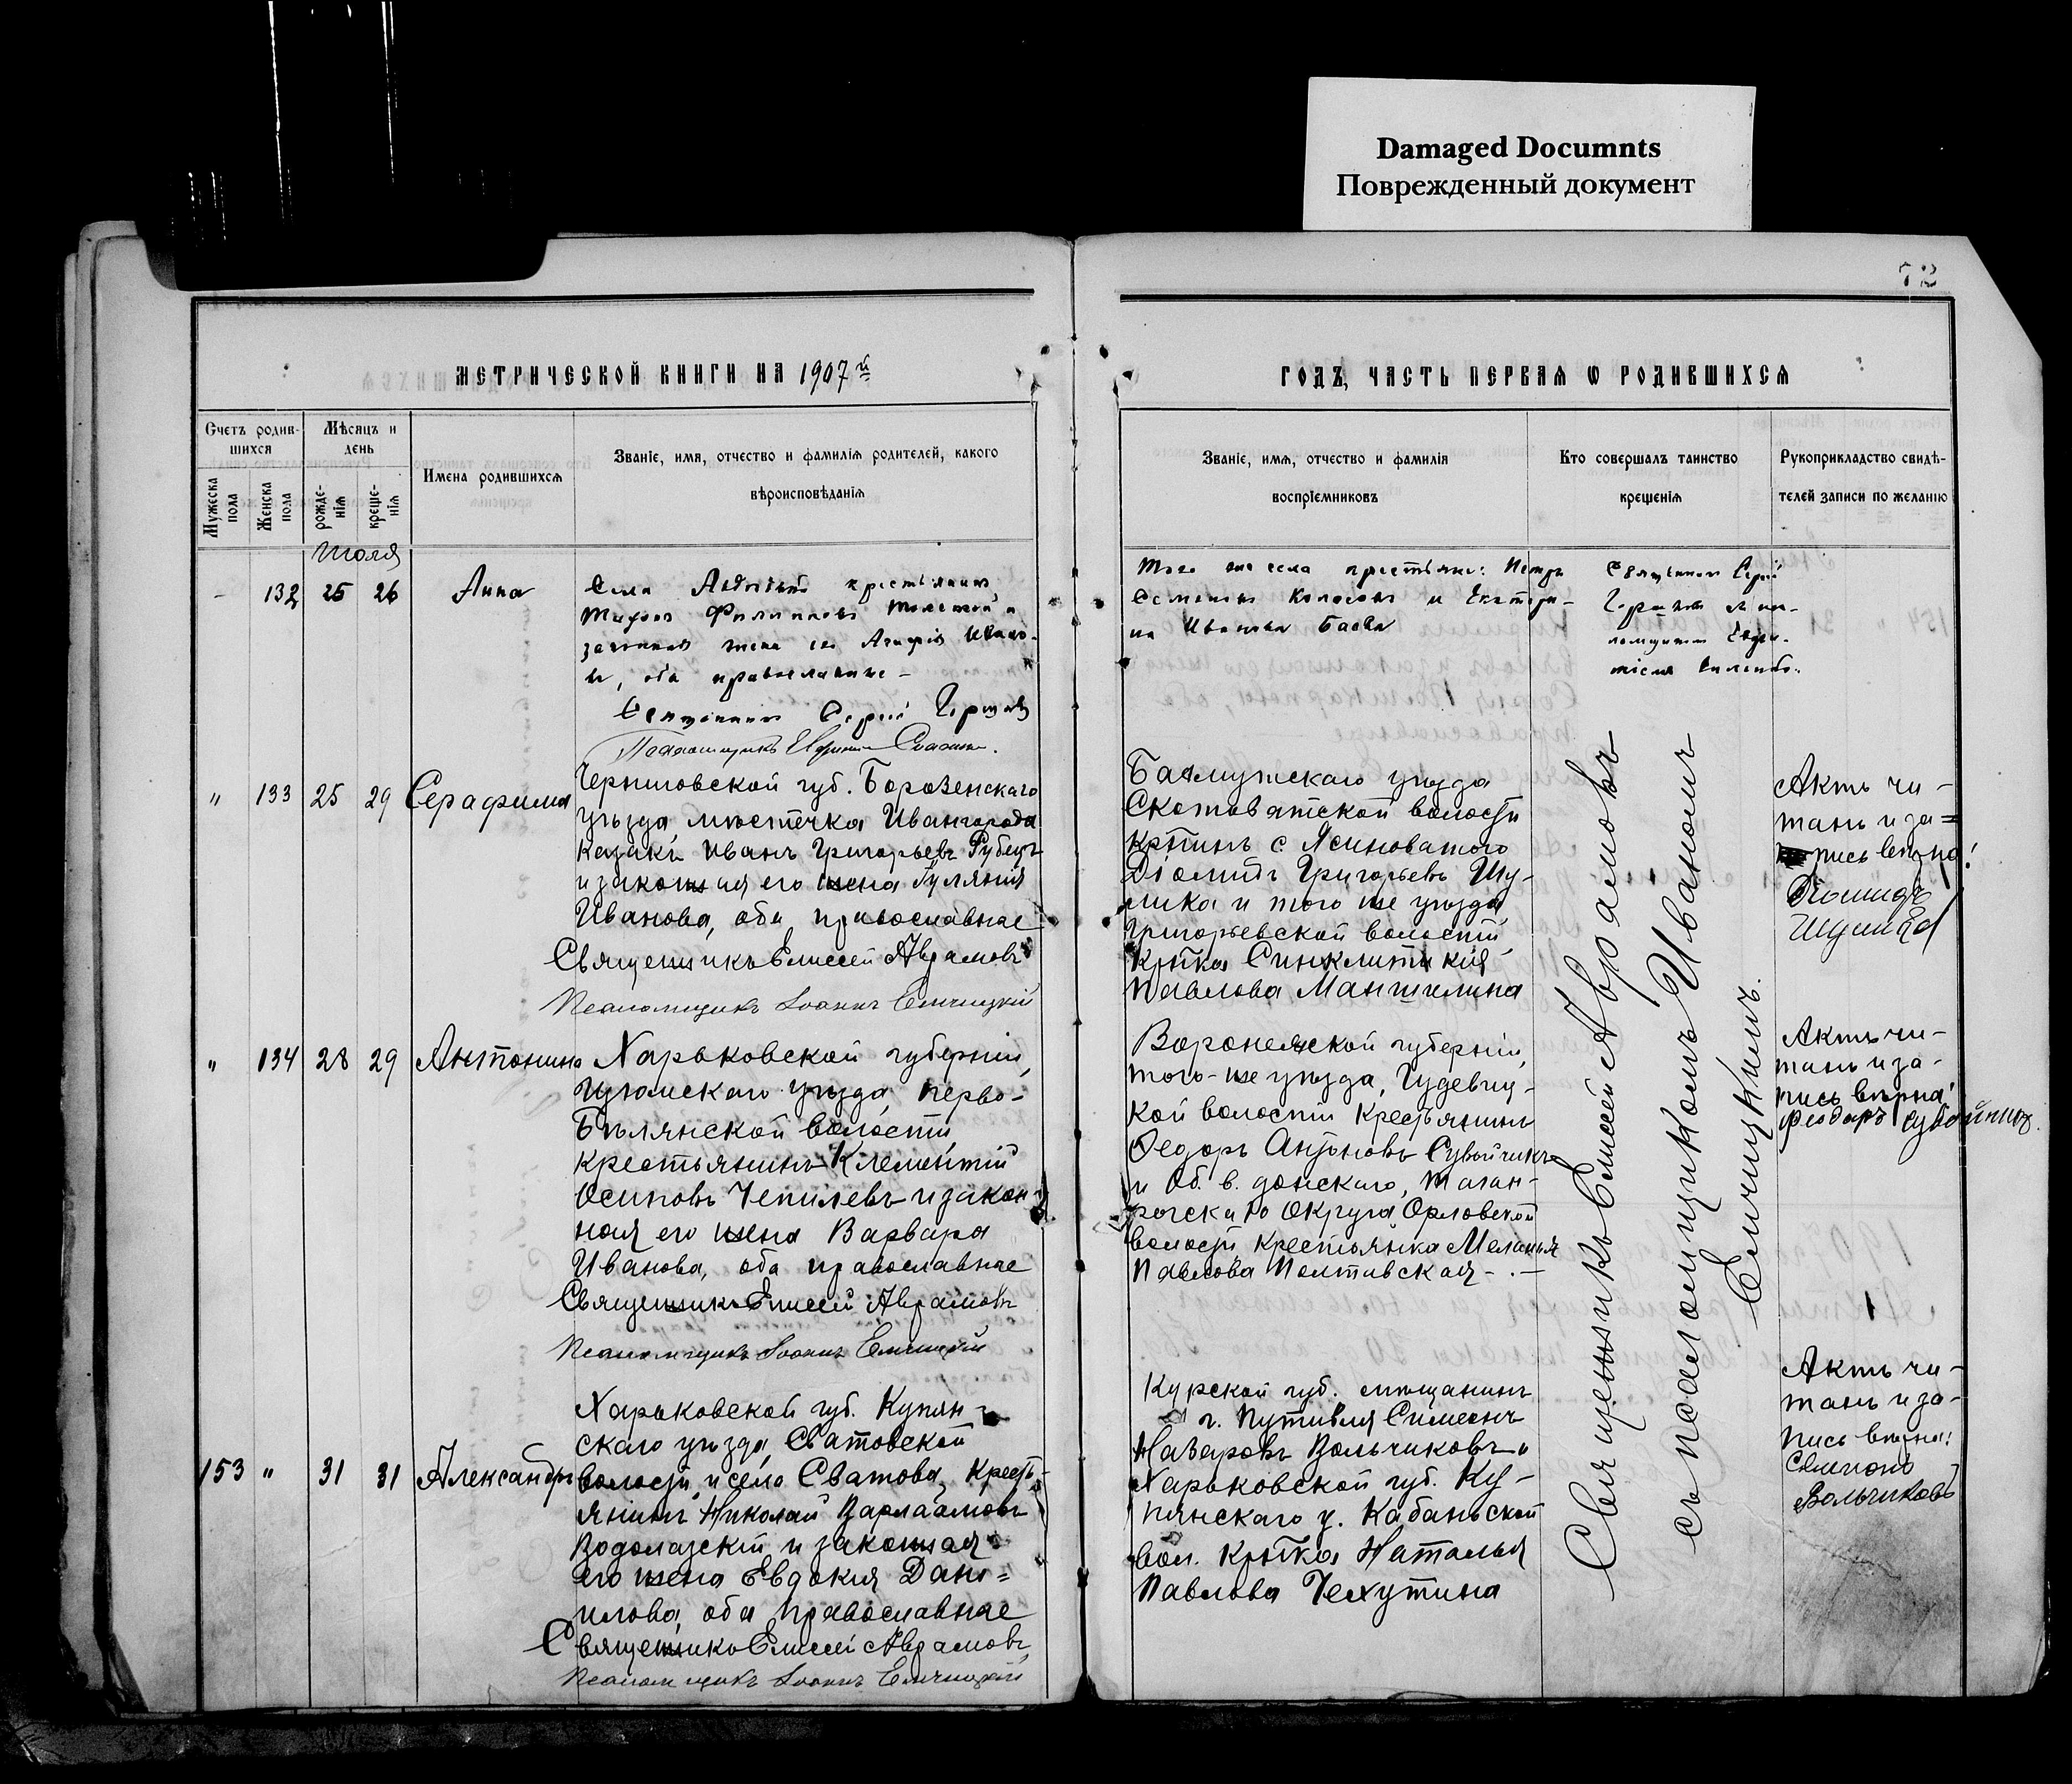 Damaged Documnts
Поврежденный документ
72
МЕТРИЧЕСКОЙ КНИГИ НА 1907й
ГОДЪ, ЧАСТЬ ПЕРВАЯ Ѡ РОДИВШИХСЯ
Счетъ родив-
шихся
Мужеска пола
Женска пола
Мѣсяцъ и
день
рожде-
нія
креще-
нія
Имена родившихся
Званіе, имя, отчество и фамилія родителей, какого
вѣроисповѣданія
Званіе, имя, отчество и фамилія
воспріемниковъ
Кто совершалъ таинство
крещенія
Рукоприкладство свидѣ-
телей записи по желанію
Июля
132 25 26 Анна
Села крестьянинъ
Филипповъ и
законная жена его Ивано-
ва, оба православные
Священникъ Сергій
Псаломщикъ
Того же села крестьяне: Петръ
Семеновъ и Екатери-
на Иванова
Священникъ Сергій
" 133 25 29 Серафима
Черниговской губ. Борозенскаго
уѣзда, мѣстечка Ивангорода
казакъ Иванъ Григорьевъ Рубецъ
и законная его жена Гуляния
Иванова, оба православные
Священникъ Елисей Аврамовъ
Псаломщикъ Іоаннъ Емчицкій
Бахмутскаго уѣзда
Скотоватской волости
кртинъ с. Ясиноватого
Діомидъ Григорьевъ Шу-
лика и того же уѣзда
Григорьевской волости,
кртка Синклитикия
Павлова Маншилина
Актъ чи-
танъ и за=
пись вѣрна!
" 134 28 29 Антонина
Харьковской губерніи,
Изюмскаго уѣзда, перво-
Бѣлянской волости,
крестьянинъ Клементій
Осиповъ Чепилевъ и закон-
ная его жена Варвара
Иванова, оба православные
Священникъ Елисей Аврамовъ
Псаломщикъ Іоаннъ Емчицкій
Воронежской губерніи,
того-же уѣзда, Гудевиц-
кой волости крестьянинъ
Ѳедоръ Антоновъ Сувойчикъ
и Об. в. донскаго, таган-
рогскаго округа Орловской
волости, крестьянка Меланья
Павлова Полтавская -.-
Актъ чи-
танъ и за-
пись вѣрна!
Феодоръ
153 " 31 31 Александръ
Харьковской губ. Купян-
скаго уѣзда, Сватовской
волости, и села Сватова, кресть-
янинъ Николай Варлаамовъ
Водолазскій и законная
его жена Евдокия Дани=
илова, оба православные
Священникъ Елисей Аврамовъ
Псаломщикъ Іоаннъ Емчицкій
Курской губ. мѣщанинъ
г. Путивля Симеонъ
Назаровъ Вольчиковъ и
Харьковской губ. Ку-
пянскаго у. Кабаньской
вол. кртка Наталья
Павлова Чехутина
Священникъ Елисей Аврамовъ
съ псаломщикомъ Иваномъ
Емчицкимъ.
Актъ чи-
танъ и за-
пись вѣрна:
Симеонъ
Вольчиковъ